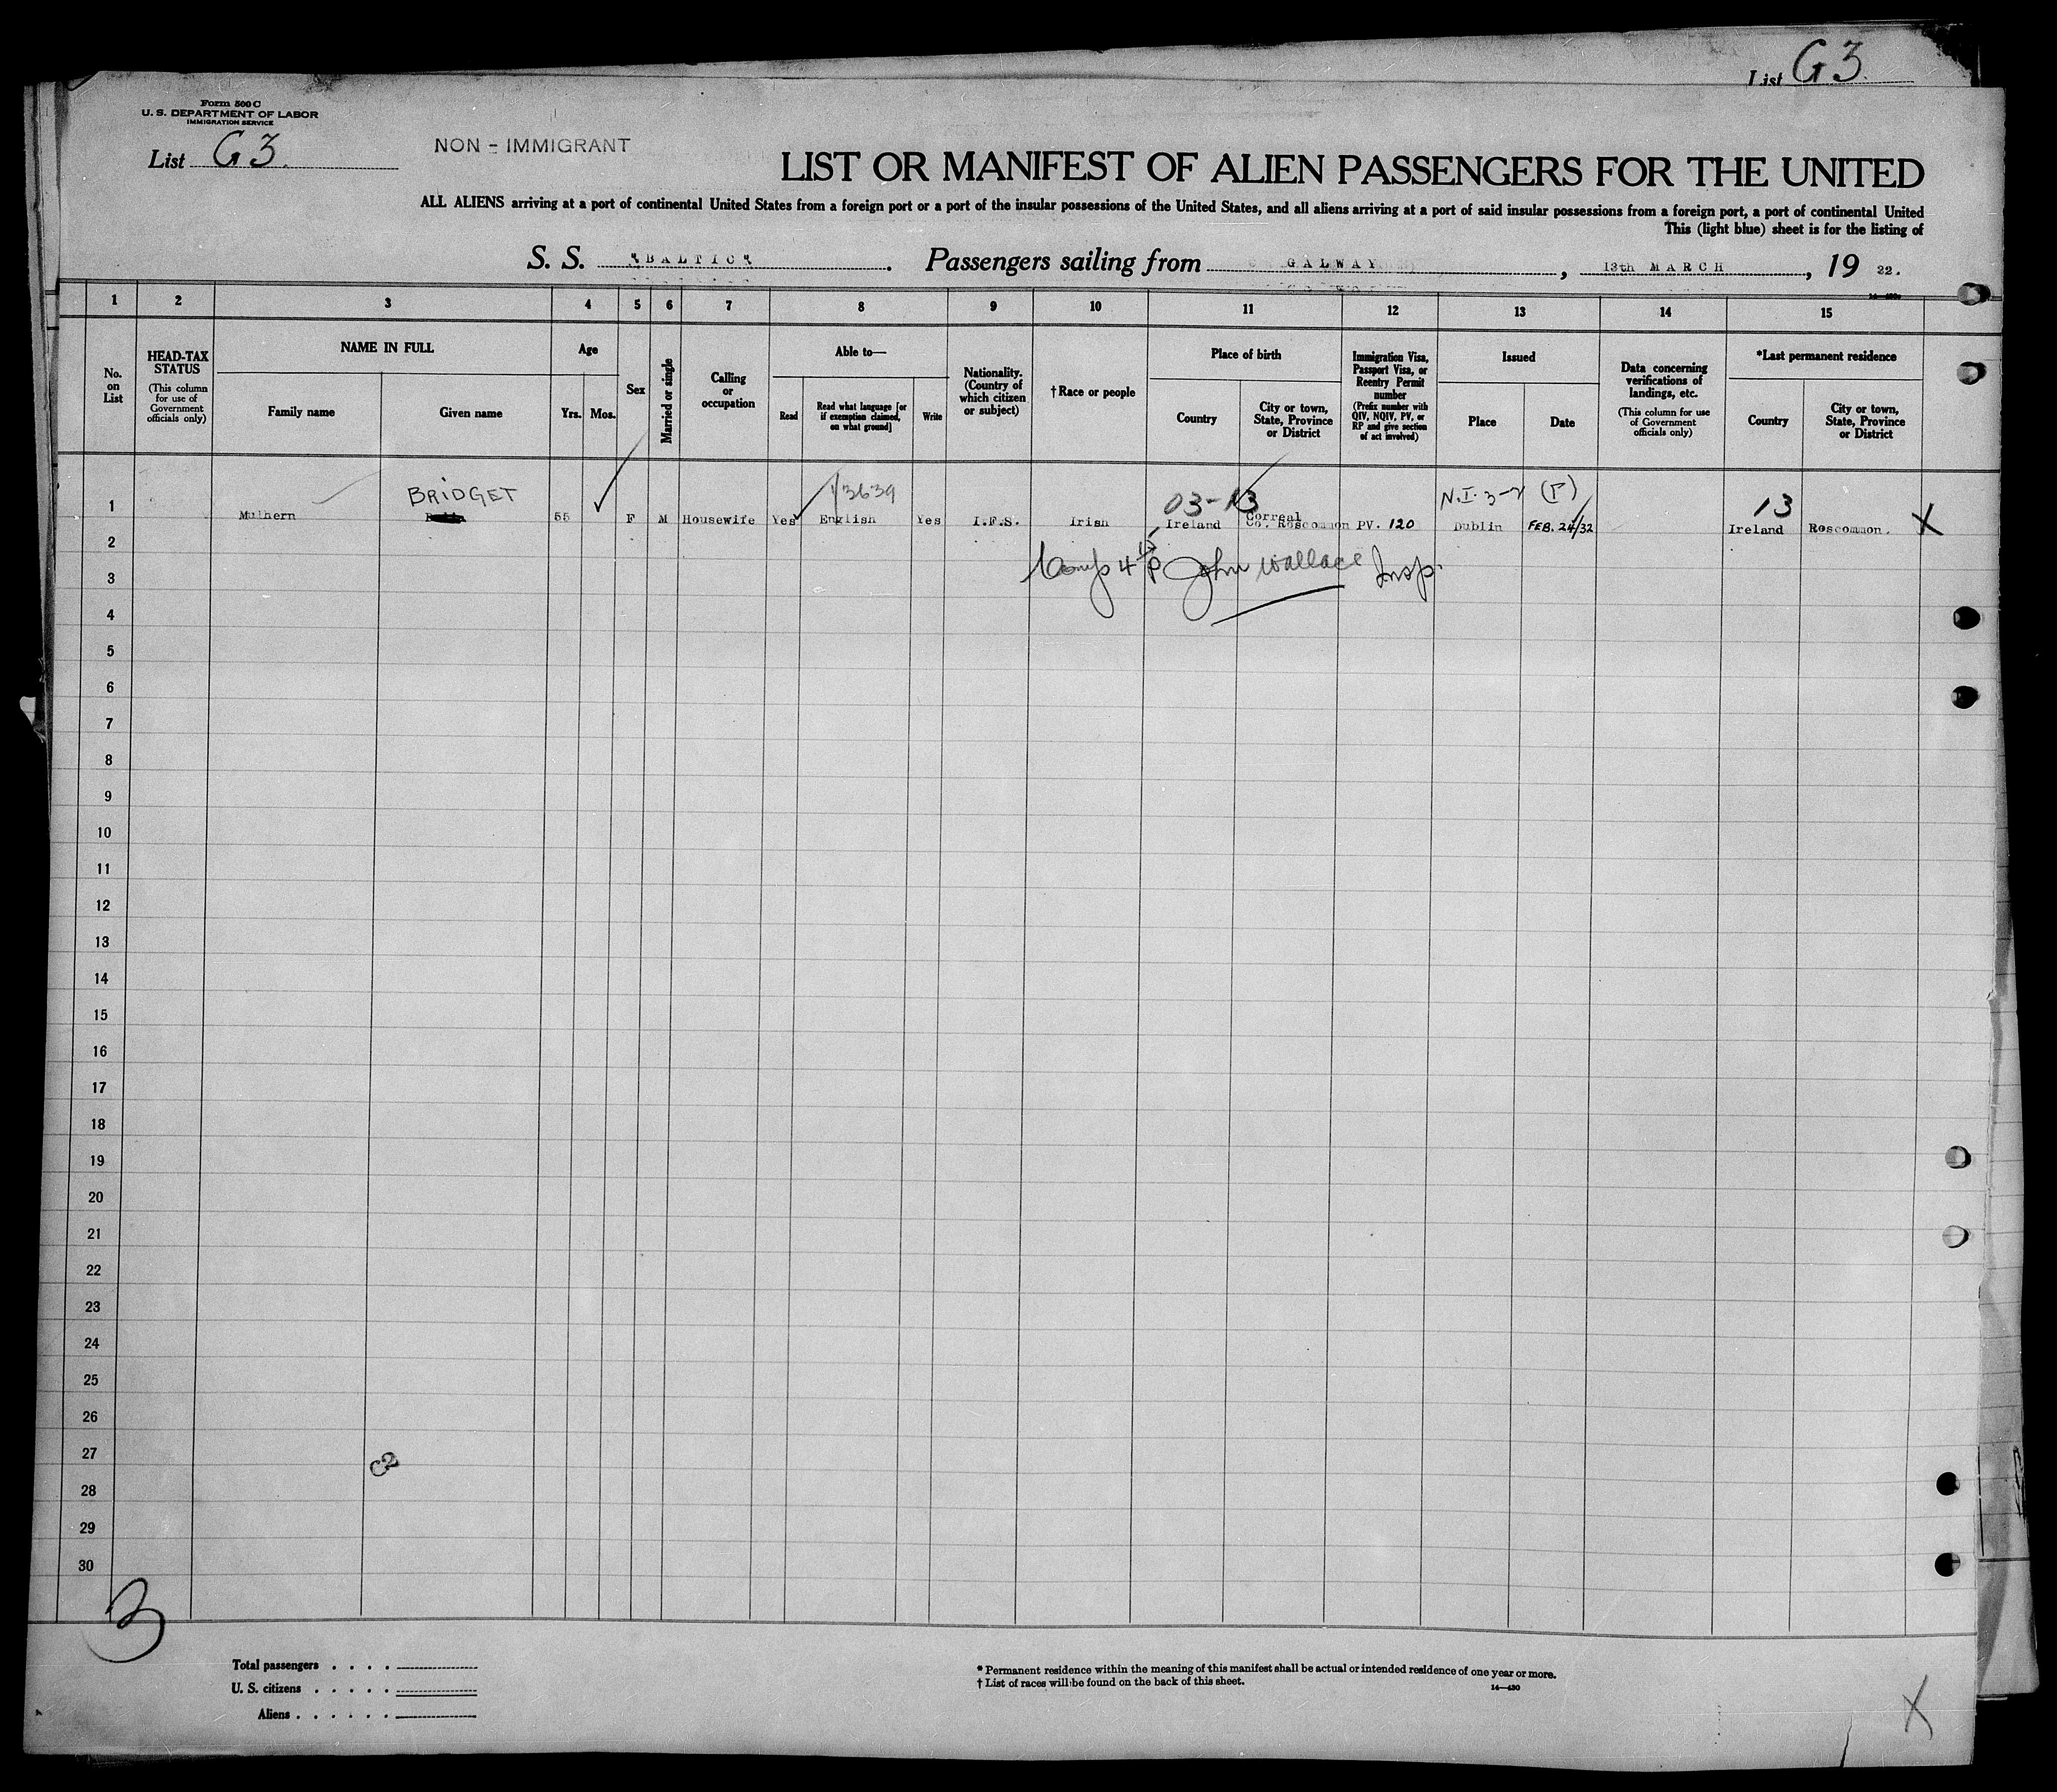 List G3
Form 500 C
U. S. DEPARTMENT OF LABOR
IMMIGRATION SERVICE
List G3.
NON - IMMIGRANT
LIST OR MANIFEST OF ALIEN PASSENGERS FOR THE UNITED
ALL ALIENS arriving at a port of continental United States from a foreign port or a port of the insular possessions of the United States, and all aliens arriving at a port of said insular possessions from a foreign port, a port of continental United
This (light blue) sheet is for the listing of
S. S. "BALTIC". Passengers sailing from GALWAY, 13th MARCH, 19 22.
1 2 3 4 5 6 7 8 9 10 11 12 13 14 15
No. on List
HEAD-TAX STATUS
(This column for use of Government officials only)
NAME IN FULL
Family name
Given name
Age
Yrs.
Mos.
Sex
Married or single
Calling or occupation
Able to—
Read
Read what language [or if exemption claimed, on what ground]
Write
Nationality. (Country of which citizen or subject)
† Race or people
Place of birth
Country
City or town, State, Province or District
Immigration Visa, Passport Visa, or Reentry Permit number
(Prefix number with QIV, NQIV, PV, or RP and give section of act involved)
Issued
Place
Date
Data concerning verifications of landings, etc.
(This column for use of Government officials only)
*Last permanent residence
Country
City or town, State, Province or District
BRIDGET 13639 03-13 N.I. 3-2 (P) 13
1 Mulhern 55 F M Housewife Yes English Yes I.F.S. Irish Ireland Correal Co. Roscommon PV. 120 Dublin FEB. 24/32 Ireland Roscommon. X
2
John Wallace Insp.
3
4
5
6
7
8
9
10
11
12
13
14
15
16
17
18
19
20
21
22
23
24
25
26
27
28
29
30
3
Total passengers . . . .
U. S. citizens . . . . .
Aliens . . . . . .
* Permanent residence within the meaning of this manifest shall be actual or intended residence of one year or more.
† List of races will be found on the back of this sheet.
14—430
X